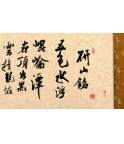 研山銘
五色水浮
崑崙潭
在頂出黑
雲挂龍怪